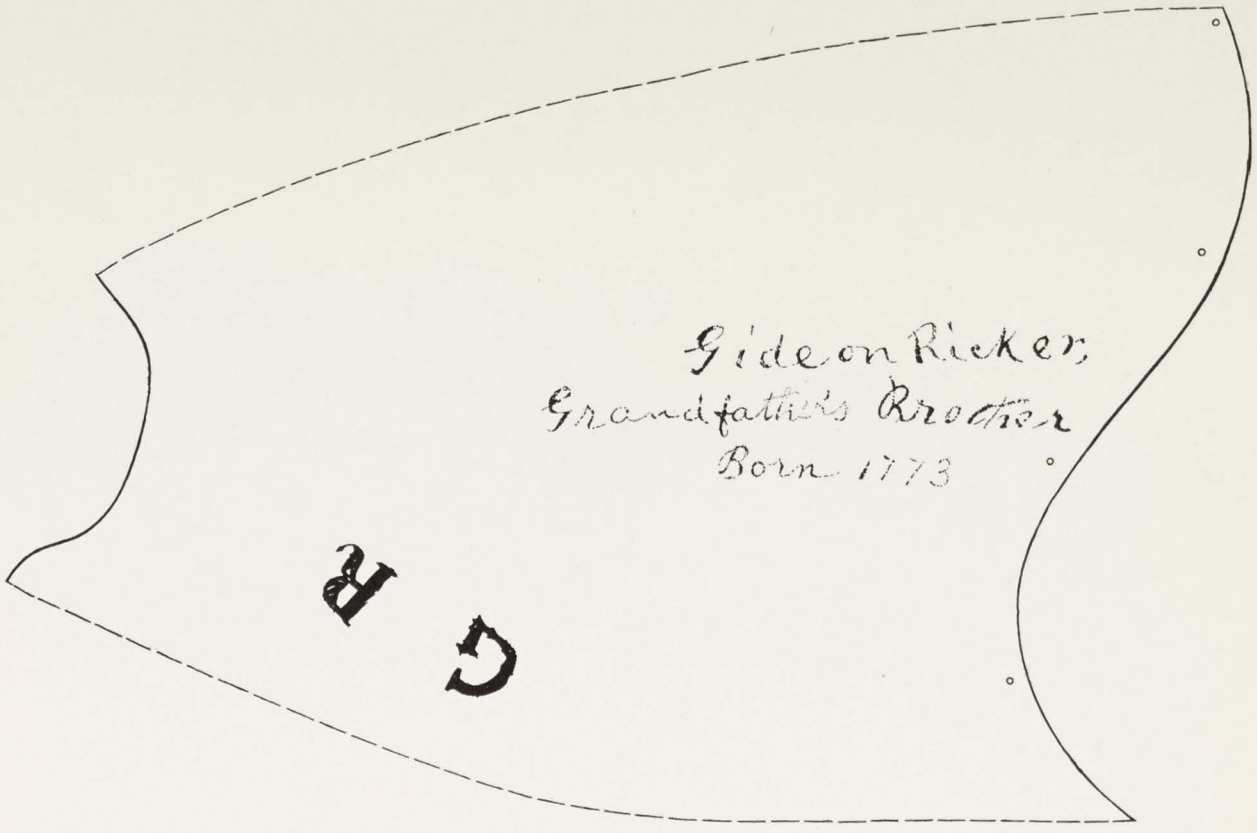 Gideon Ricker,
Grandfather's Brother
Born 1773
G R